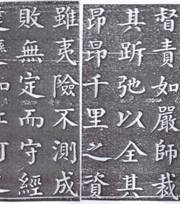 督責如嚴師裁
其跅弛以全其
昂昂千里之資
雖夷險不測成
敗無定而守經